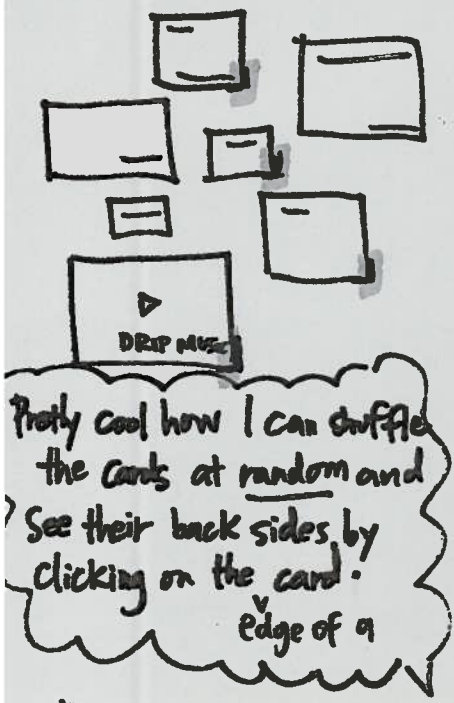 DRIP MUSIC
Pretty cool how I can shuffle
the cards at random and
See their back sides by
clicking on the card.
edge of a